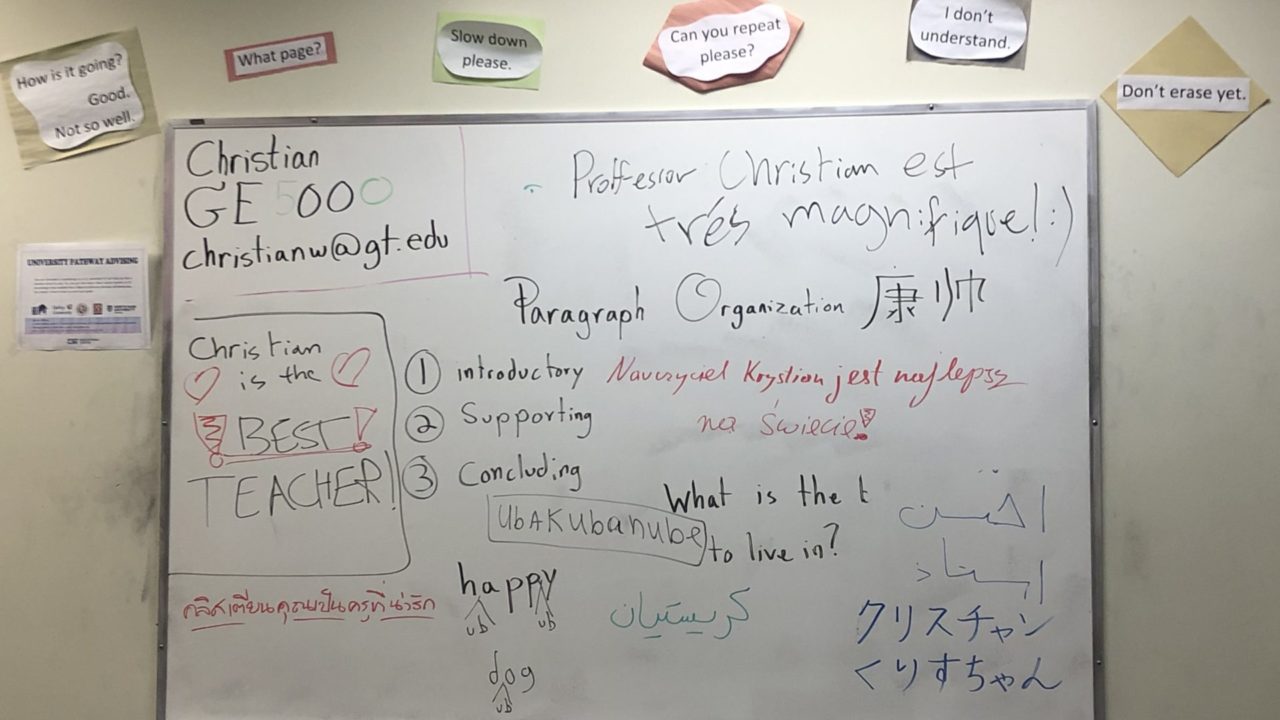 How is it going?
Good.
Not so well.
What page?
Slow down
please.
Can you repeat
please?
I don't
understand.
Don't erase yet.
UNIVERSITY PATHWAY ADVISING
Christian
GE 5000
christianw@gt.edu
Proffesior Christian est
trés magnifique! :)
Paragraph Organization 康帅
Christian
is the
BEST!
TEACHER!
① introductory
② Supporting
③ Concluding
Nauczyciel Krystian jest najlepszy
na Świecie!
UbAKubanube
What is the t
to live in?
احسن
استاذ
คลิสเตียนคุณเป็นครูที่น่ารัก
happy
ub ub
dog
ub
كريستيان
クリスチャン
くりすちゃん